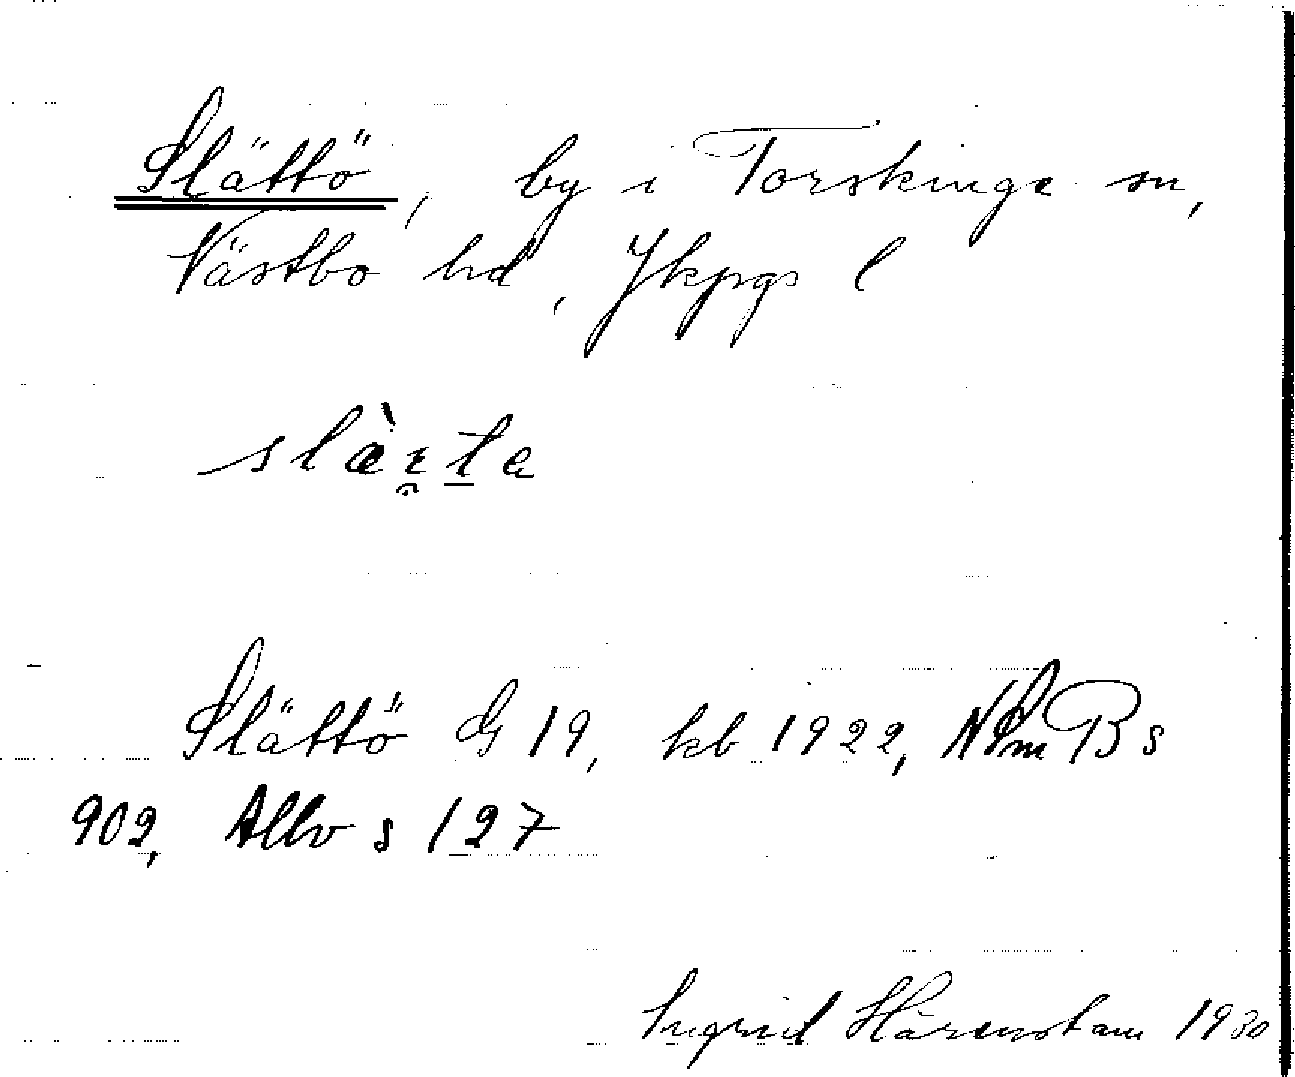 Slättö, by i Torskinge sn,
Västbo hd, Jkpgs l
Slättö G 19, kb 1922, NSmB s
902, Allv s 127
Ingrid Härenstam 1930